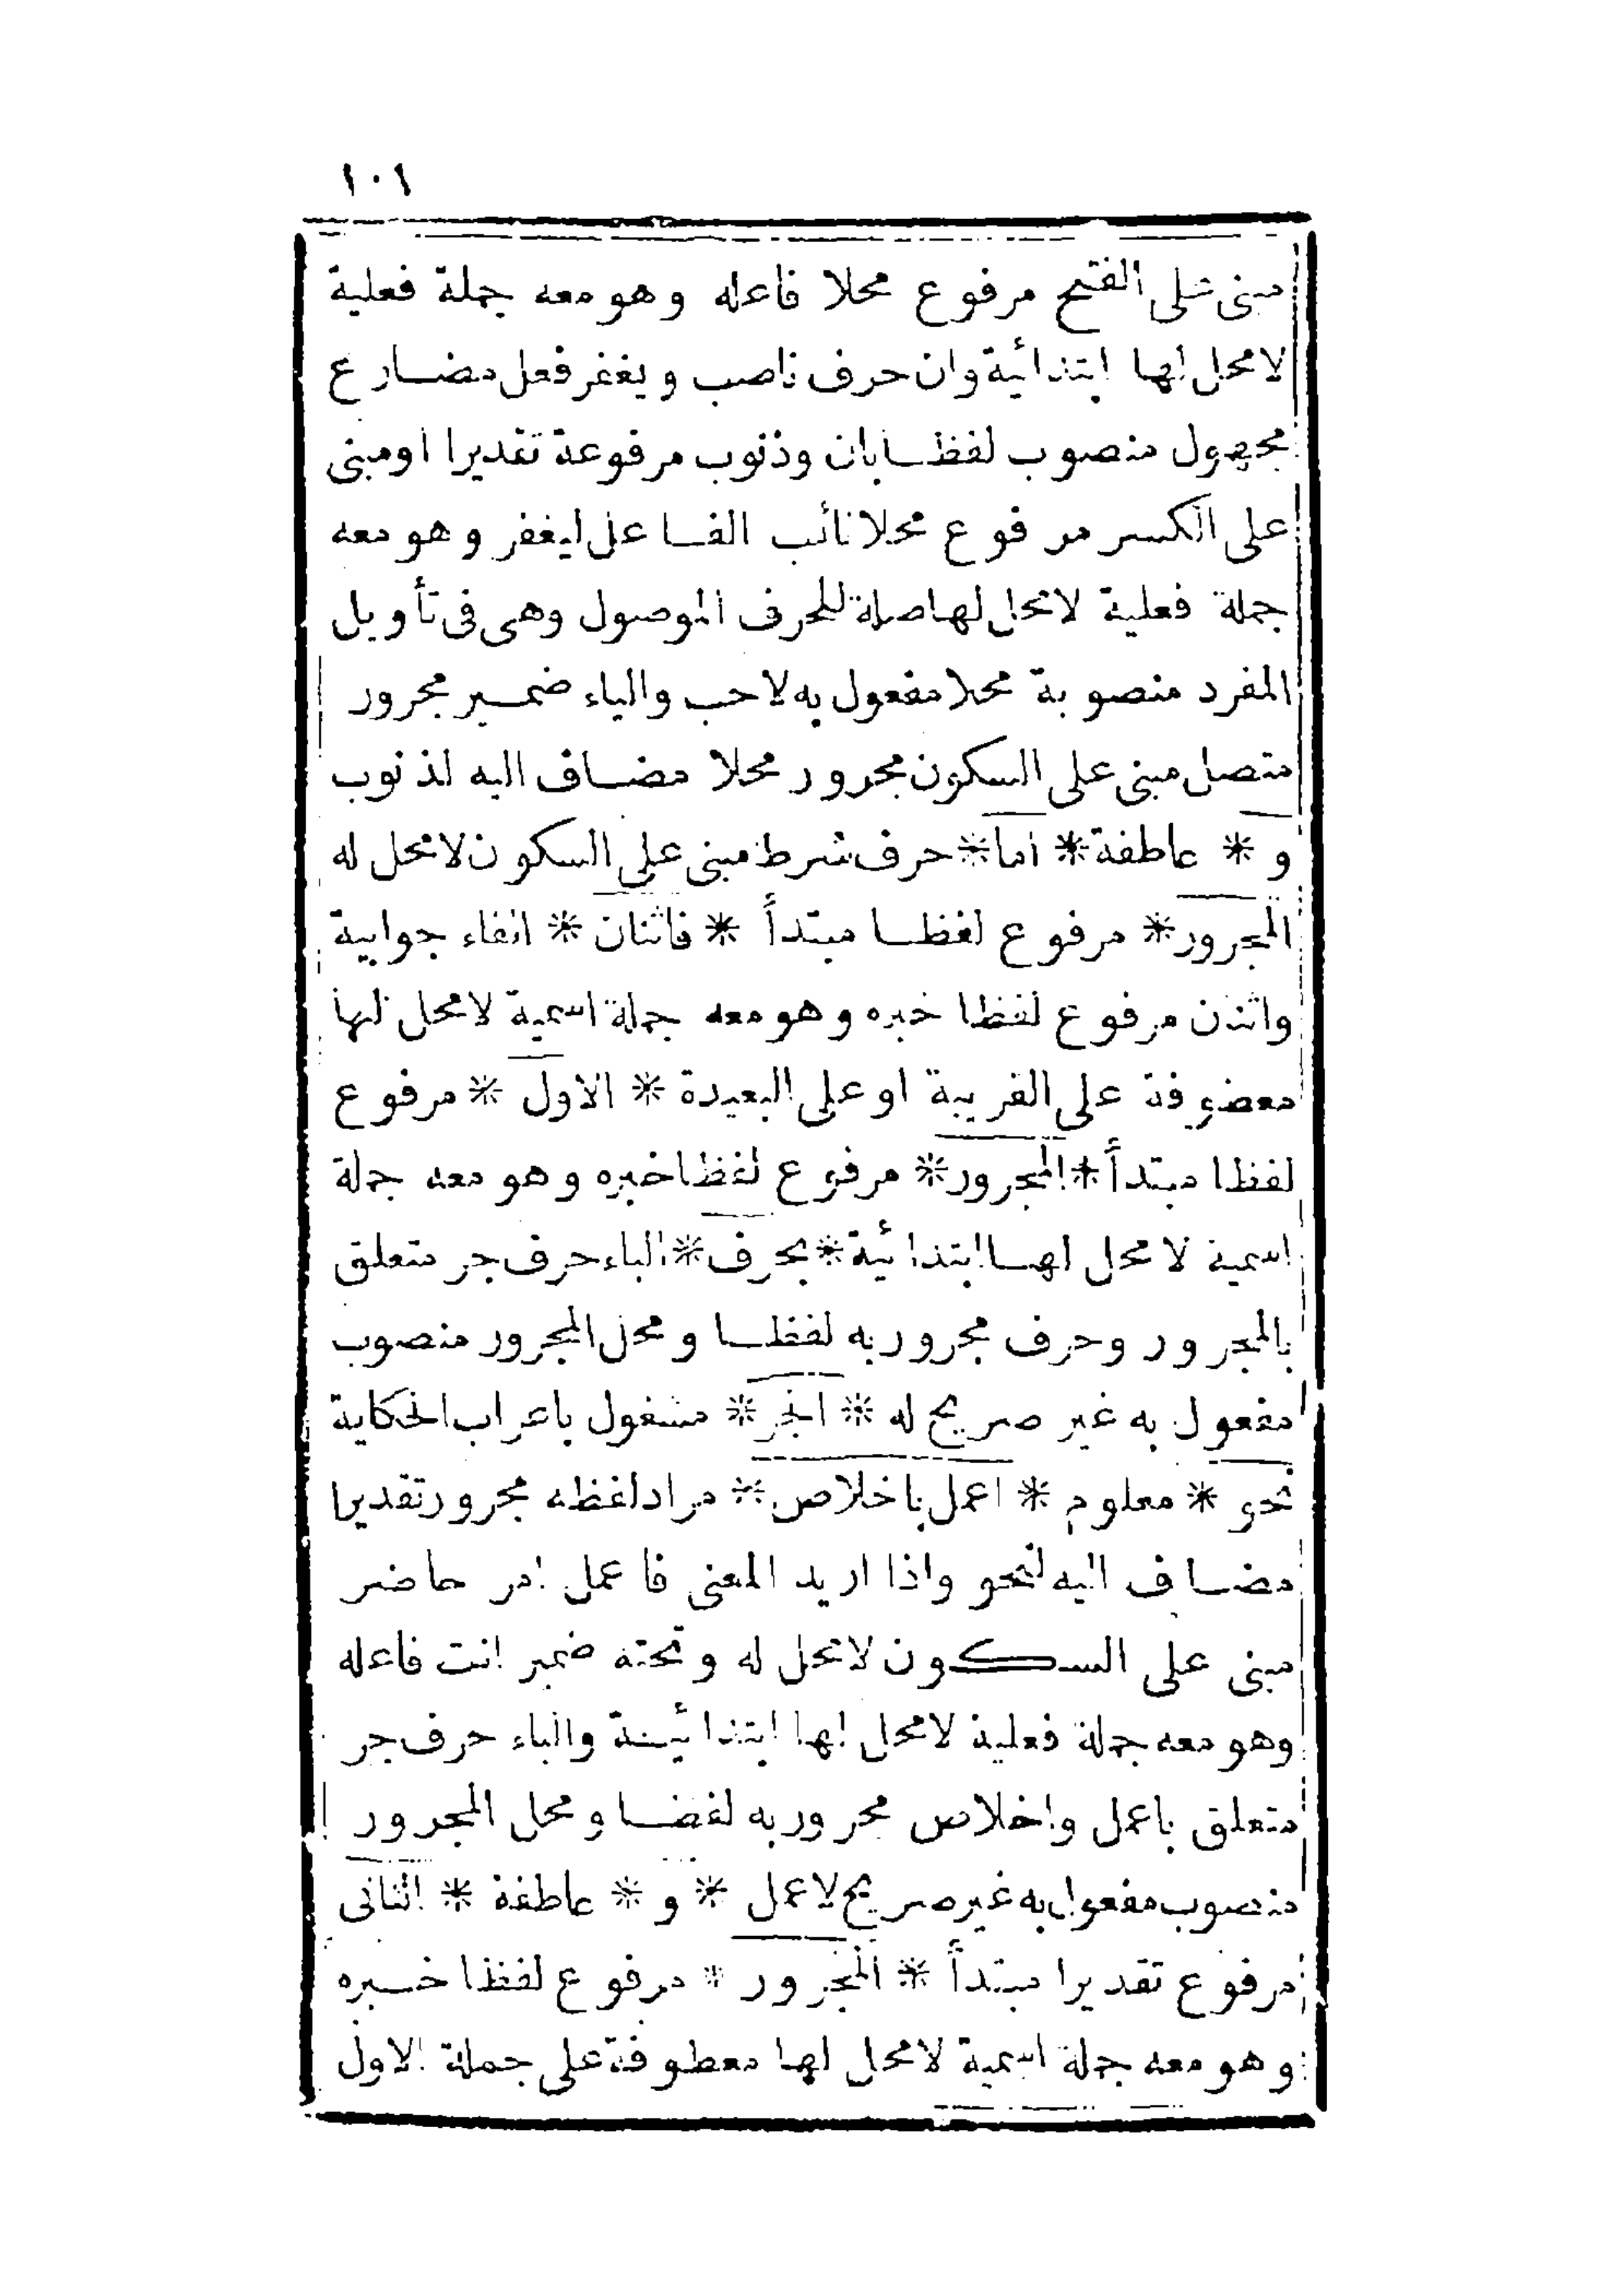 ١٠١
مبنى على الفتح مرفوع محلا فاعله وهو معه جملة فعلية
لا محل لها ابتدائية وان حرف ناصب ويغفر فعل مضارع
مجهول منصوب لفظا بان وذنوب مرفوعة تقديرا او مبنى
على الكسر مرفوع محلا نائب الفاعل ليغفر وهو معه
جملة فعلية لا محل لها صلة للحرف الموصول وهى فى تأويل
المفرد منصوبة محلا مفعول به لاحب والياء ضمير مجرور
متصل مبنى على السكون مجرور محلا مضاف اليه لذنوب
و * عاطفة * اما * حرف شرط مبنى على السكون لا محل له
المجرور * مرفوع لفظا مبتدأ * فاثنان * الفاء جوابية
واثنان مرفوع لفظا خبره وهو معه جملة اسمية لا محل لها
معطوفة على القريبة او على البعيدة * الاول * مرفوع
لفظا مبتدأ * المجرور * مرفوع لفظا خبره وهو معه جملة
اسمية لا محل لها ابتدائية * بحرف * الباء حرف جر متعلق
بالمجرور وحرف مجرور به لفظا ومحل المجرور منصوب
مفعول به غير صريح له * الجر * مشغول باعراب الحكاية
نحو * معلوم * اعمل باخلاص * مراد لفظه مجرور تقديرا
مضاف اليه لنحو واذا اريد المعنى فاعمل امر حاضر
مبنى على السكون لا محل له وتحته ضمير انت فاعله
وهو معه جملة فعلية لا محل لها ابتدائية والباء حرف جر
متعلق باعمل واخلاص مجرور به لفظا ومحل المجرور
منصوب مفعول به غير صريح لاعمل * و * عاطفة * الثانى
مرفوع تقديرا مبتدأ * المجرور * مرفوع لفظا خبره
وهو معه جملة اسمية لا محل لها معطوفة على جملة الاول